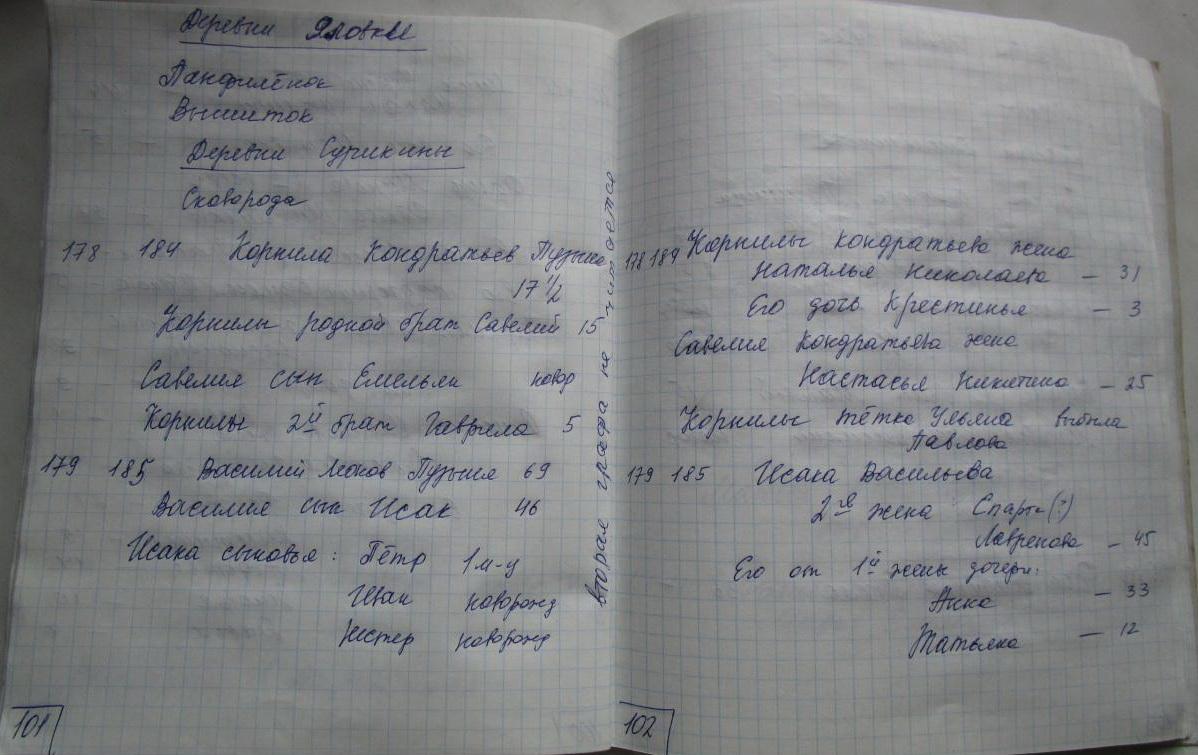 Деревни Яловке
Панфилёнок
Вышиток
Деревни Сурикины
Сковорода
178 184 Корнила Кондратьев Пузыня
17 1/2
Корнилы родной брат Савелий 15
Савелия сын Емельян новор
Корнилы 2й брат Гаврила 5
179 185 Василий Пузыня 69
Василия сын Исак 46
Исака сыновья: Пётр 1 м-ц
Иван новорожд
Нестер новорожд
101
вторая графа не читается
178 184 Корнилы Кондратьева жена
Наталья Николаева – 31
Его дочь Крестинья – 3
Савелия Кондратьева жена
Настасья Никитина – 25
Корнилы тётка Ульяна выбыла
Павлова
179 185 Исака Васильева
2я жена Спарт(?)
Лавренова – 45
Его от 1й жены дочери:
Анна – 33
Татьяна – 12
102